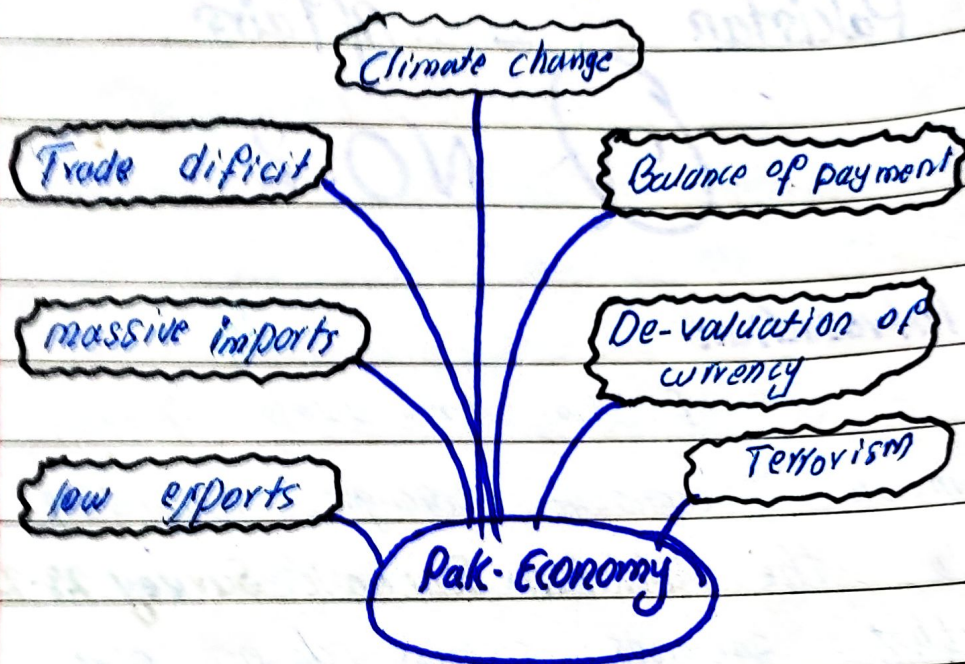 Climate change
Trade dificit
Balance of payment
massive imports
De-valuation of
currency
low exports
Terrorism
Pak-Economy